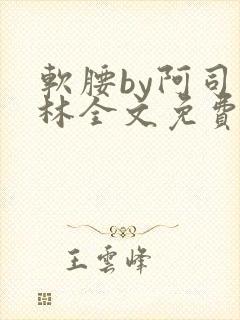 軟腰by阿司
林全文免費
王雲峰